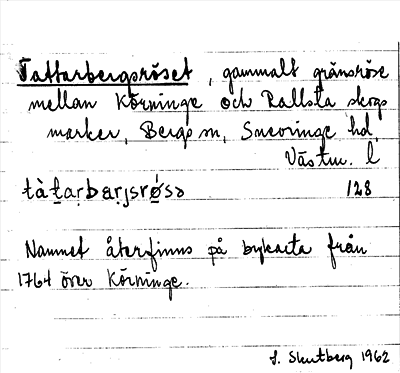 Tattarbergsröset, gammalt gränsröse
mellan Körninge och Rallsta skogs
marker, Bergs sn, Snevringe hd,
Västm. l
tàt̠ar̥bar̥jsrǿ̠sə 128
Namnet återfinns på bykarta från
1764 över Körninge.
S. Skutberg 1962